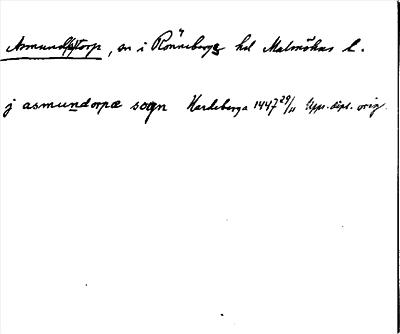 Asmund(s)torp, sn i Rönnebergs hd Malmöhus l.
j asmundorpæ sogn Hardeberga 1447 29/11 Upps. dipl. orig.